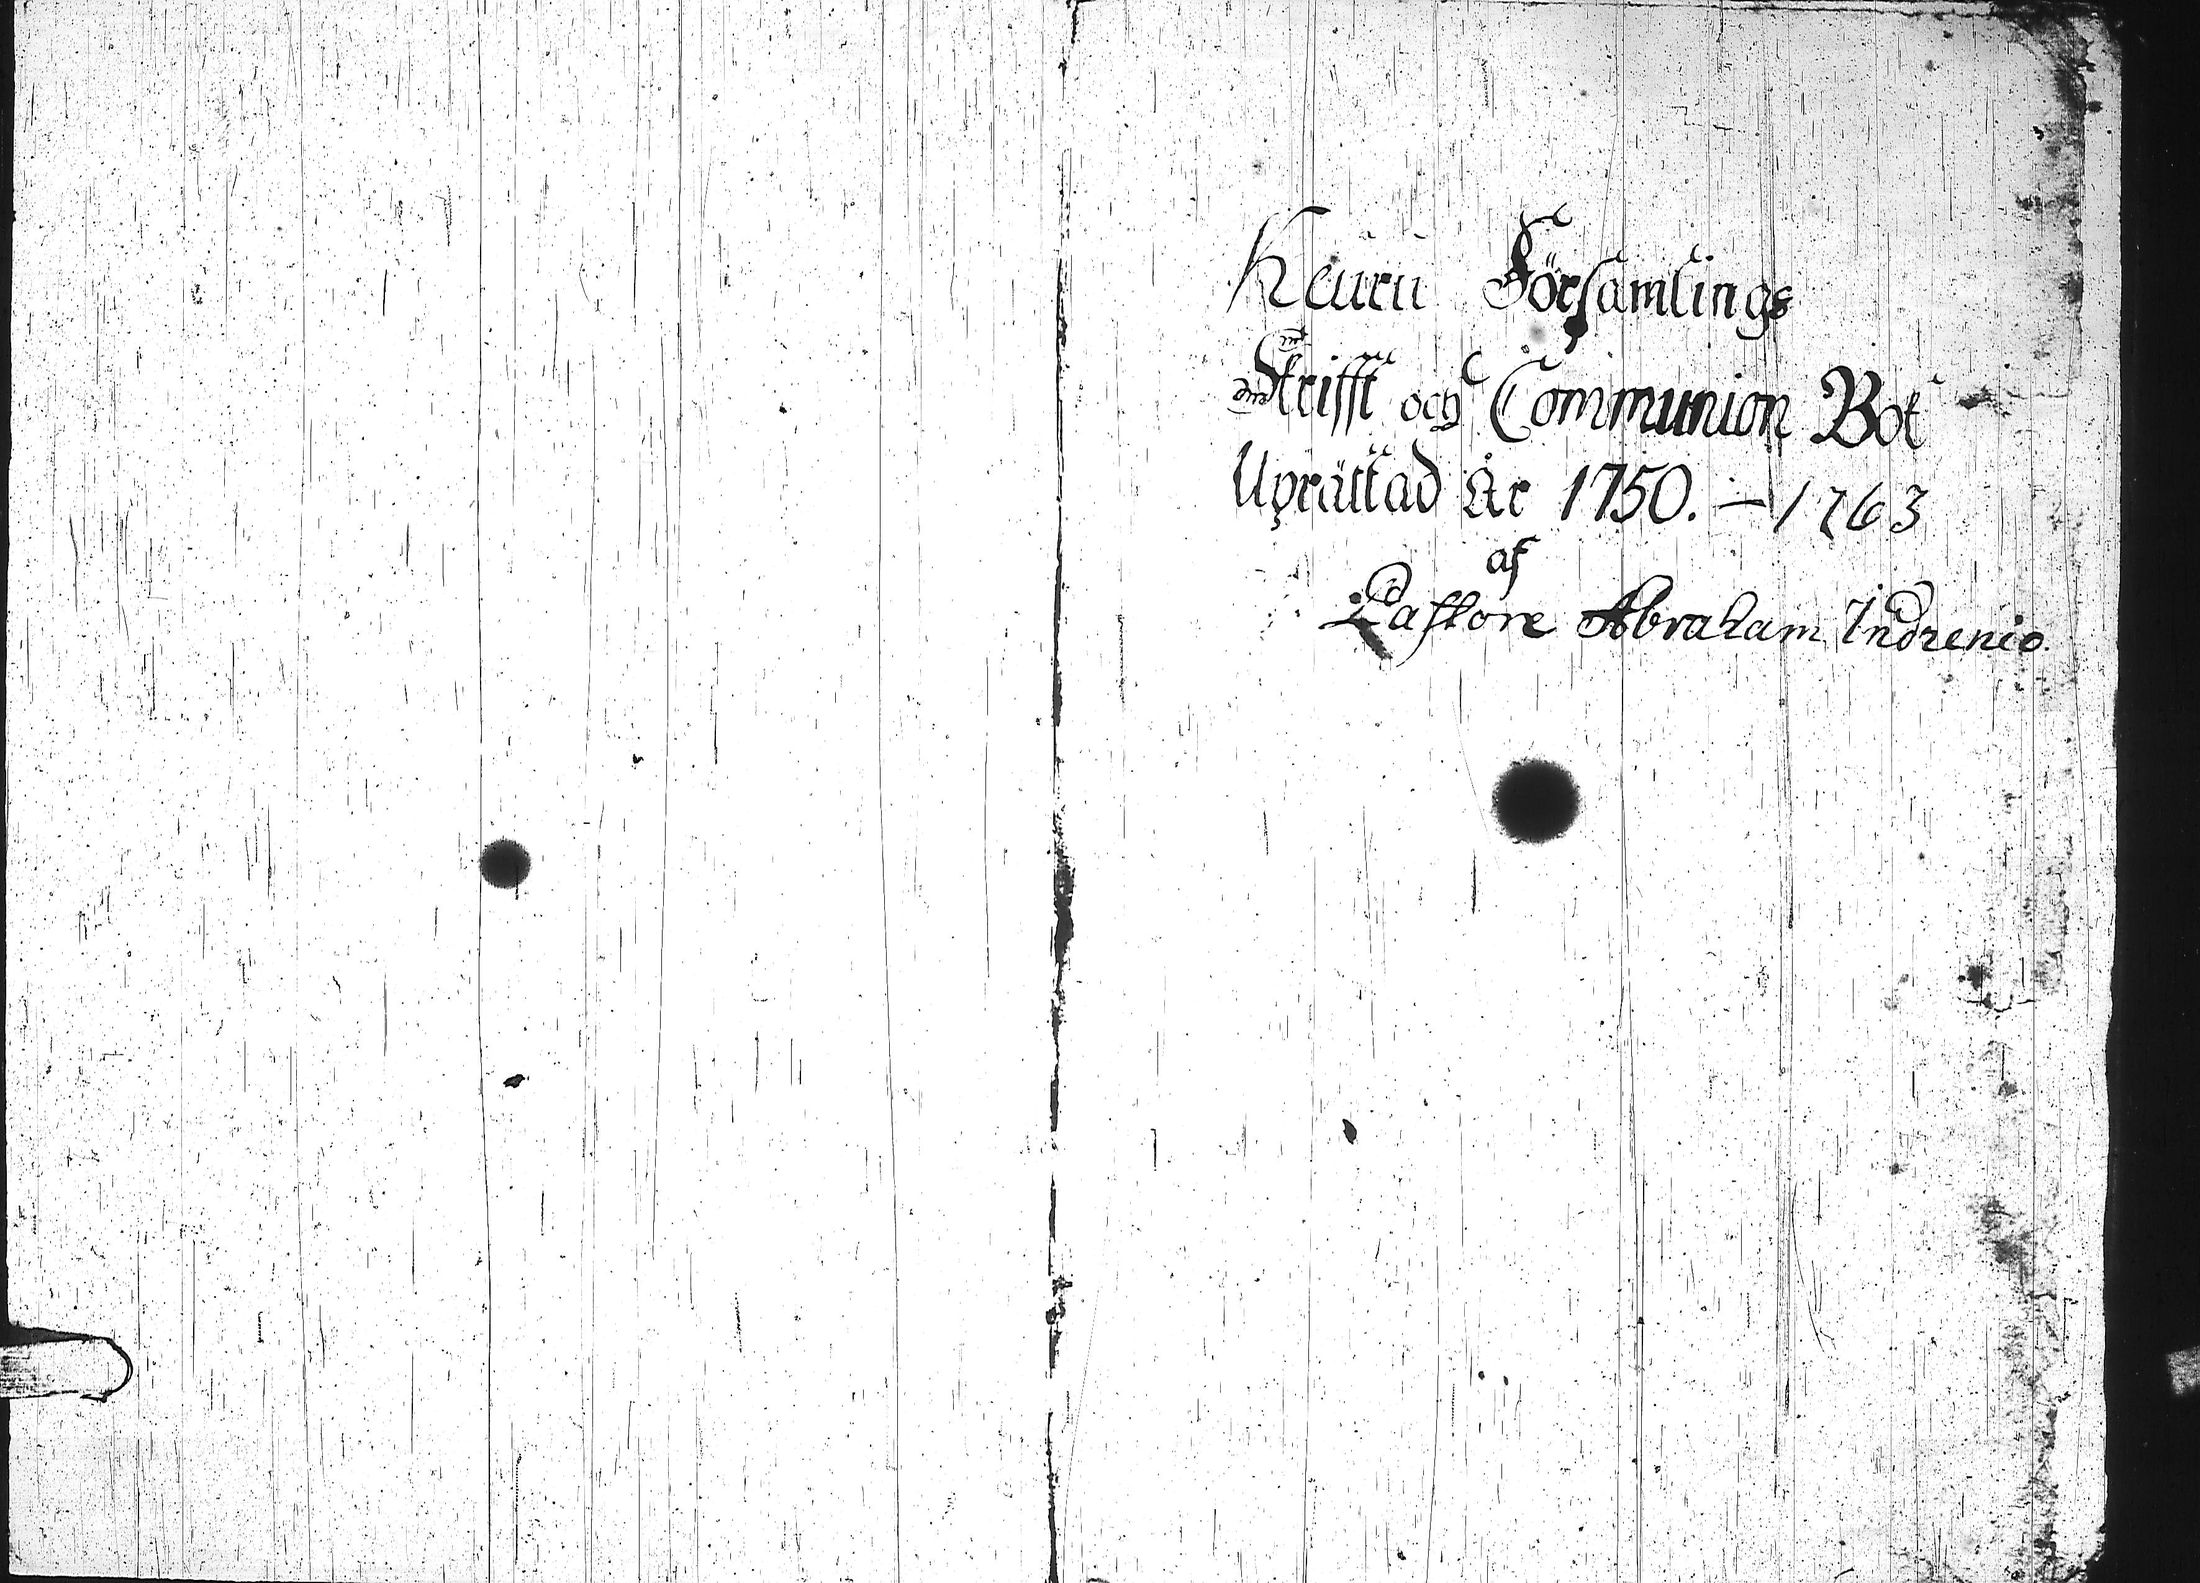 Keuru Församlings
Skrifft och Communion Bok
Uprättad År 1750. – 1763
af
Pastore Abraham Indrenio.